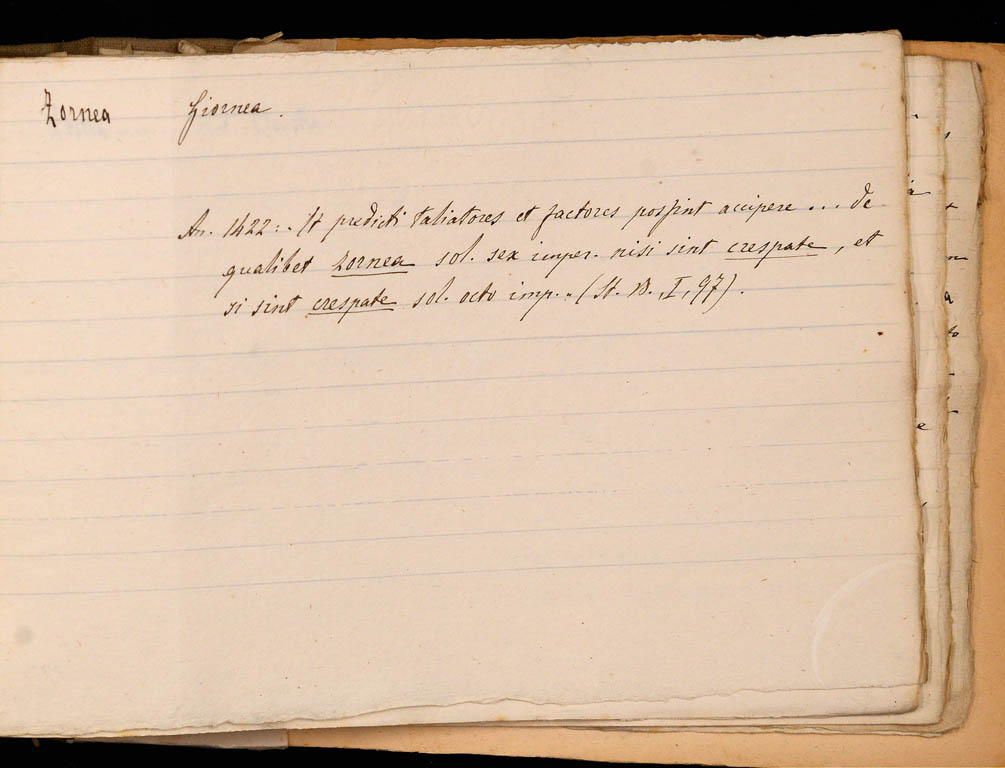 Zornea Giornea.
An. 1422: „ It predicti taliatores et factores possint accipere ... de
qualibet zornea sol. sex imper. nisi sint crespate, et
si sint crespate sol. octo imp. „ (St. B., I, 97).